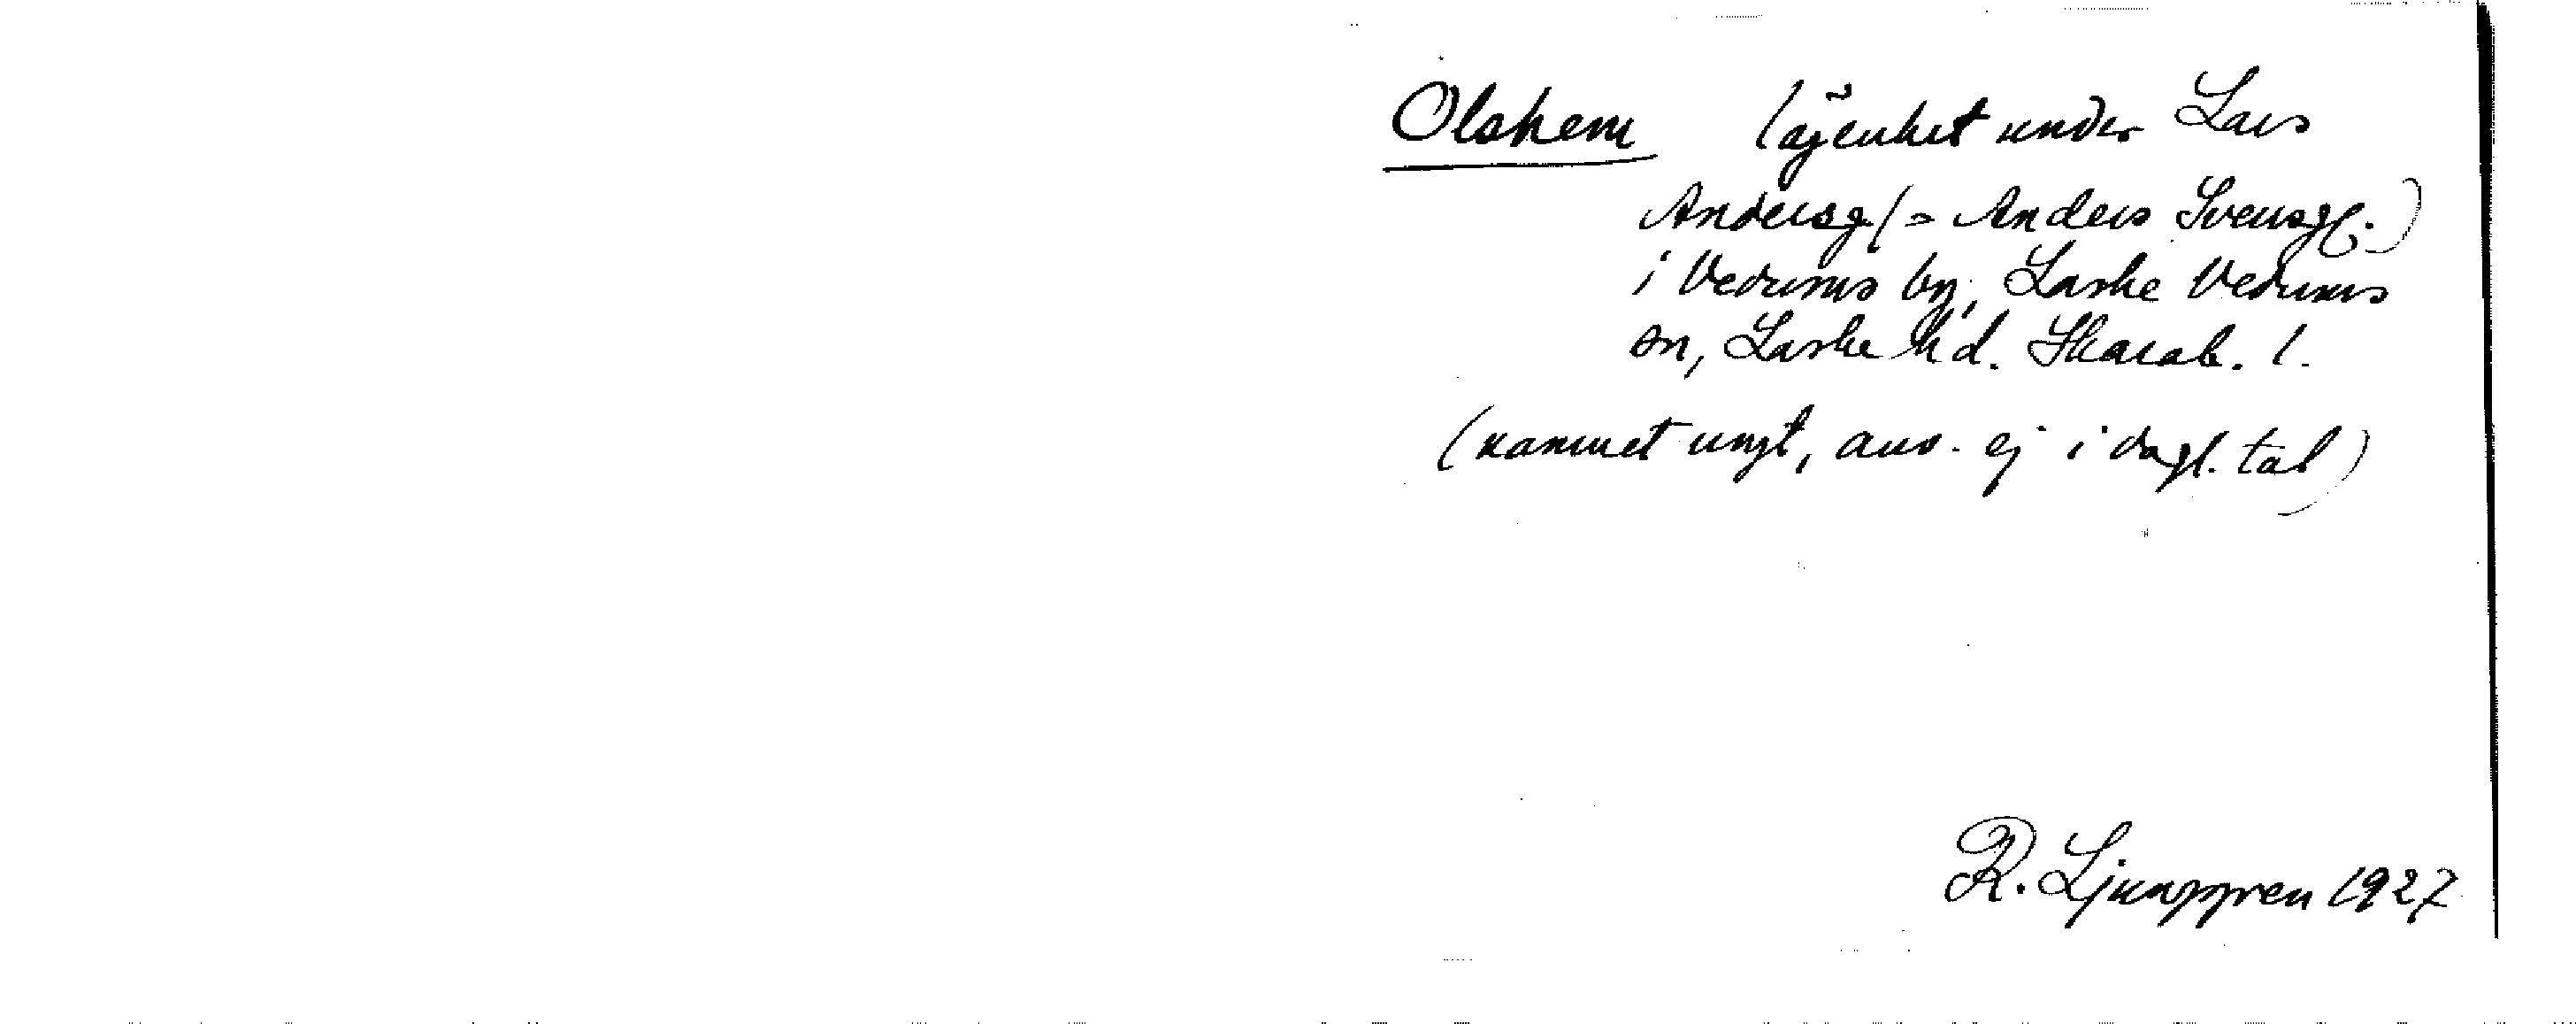 Olshem lägenhet under Lars
Andersg. (= Anders Svensg.)
i Vedums by, Laske Vedums
sn, Laske hd. Skarab. l.
(namnet ungt, anv. ej i dagl. tal)
R. Ljunggren 1927